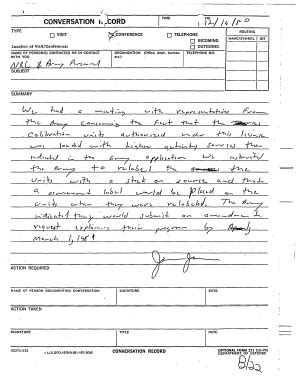 CONVERSATION RECORD
TIME
DATE
12/16/80
TYPE
VISIT
CONFERENCE
TELEPHONE
INCOMING
OUTGOING
ROUTING
NAME/SYMBOL INT
Location of Visit/Conference:
NAME OF PERSON(S) CONTACTED OR IN CONTACT WITH YOU
ORGANIZATION (Office, dept., bureau, etc.)
TELEPHONE NO.
NRC & Army Personnel
SUBJECT
SUMMARY
We had a meeting with representatives from
the Army concerning the fact that the
calibration units authorized under this license
was loaded with higher activity sources than
indicated in the army application We
the Army to relabel the the
units with a stick on source and that
a permanent label would be placed on the
units when they were reloaded. The Army
indicated they would submit an amendment
request explaining their program by
March 1, 1981
ACTION REQUIRED
NAME OF PERSON DOCUMENTING CONVERSATION
SIGNATURE
DATE
ACTION TAKEN
SIGNATURE
TITLE
DATE
CONVERSATION RECORD
OPTIONAL FORM 271
DEPARTMENT OF DEFENSE
B/22